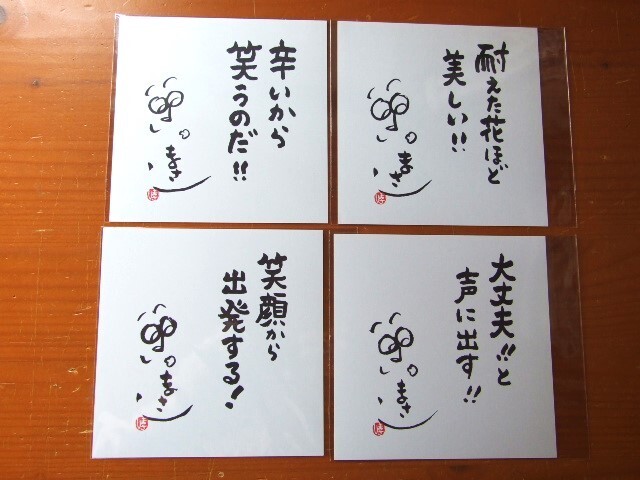 辛いから
笑うのだ!!
まさし
耐えた花ほど
美しい!!
まさし
笑顔から
出発する!
まさし
大丈夫!!と
声に出す!!
まさし